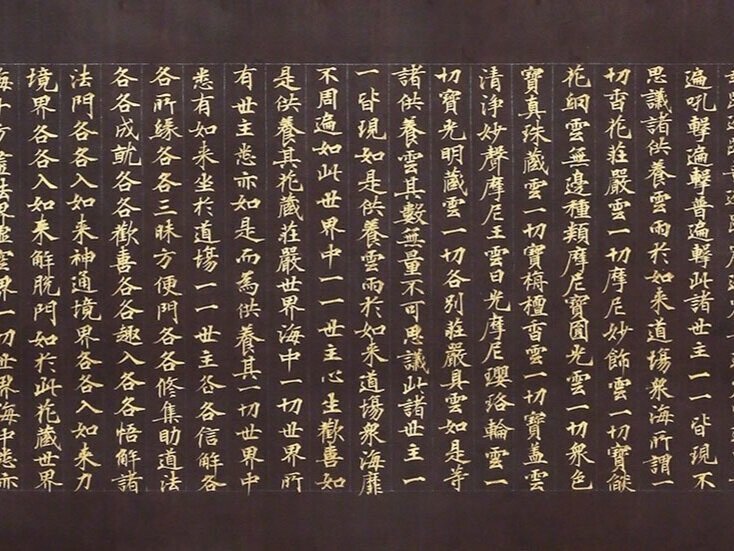 遍吼擊遍擊普遍擊此諸世主一一皆現不
思議諸供養雲雨於如来道場衆海所謂一
切香花莊嚴雲一切摩尼妙飾雲一切寶焰
花網雲無邊種類摩尼寶圓光雲一切衆色
寶真珠藏雲一切寶栴檀香雲一切寶盖雲
清淨妙聲摩尼王雲日光摩尼瓔珞輪雲一
切寶光明藏雲一切各別莊嚴具雲如是等
諸供養雲其數無量不可思議此諸世主一
一皆現如是供養雲雨於如来道場衆海靡
不周遍如此世界中一一世主心生歡喜如
是供養其花藏莊嚴世界海中一切世界所
有世主悉亦如是而為供養其一切世界中
悉有如来坐於道場一一世主各各信解各
各所緣各各三昧方便門各各修集助道法
各各成就各各歡喜各各趣入各各悟解諸
法門各各入如来神通境界各各入如来力
境界各各入如来解脫門如於此花藏世界
海十方盡法界虛空界一切世界海中悉亦